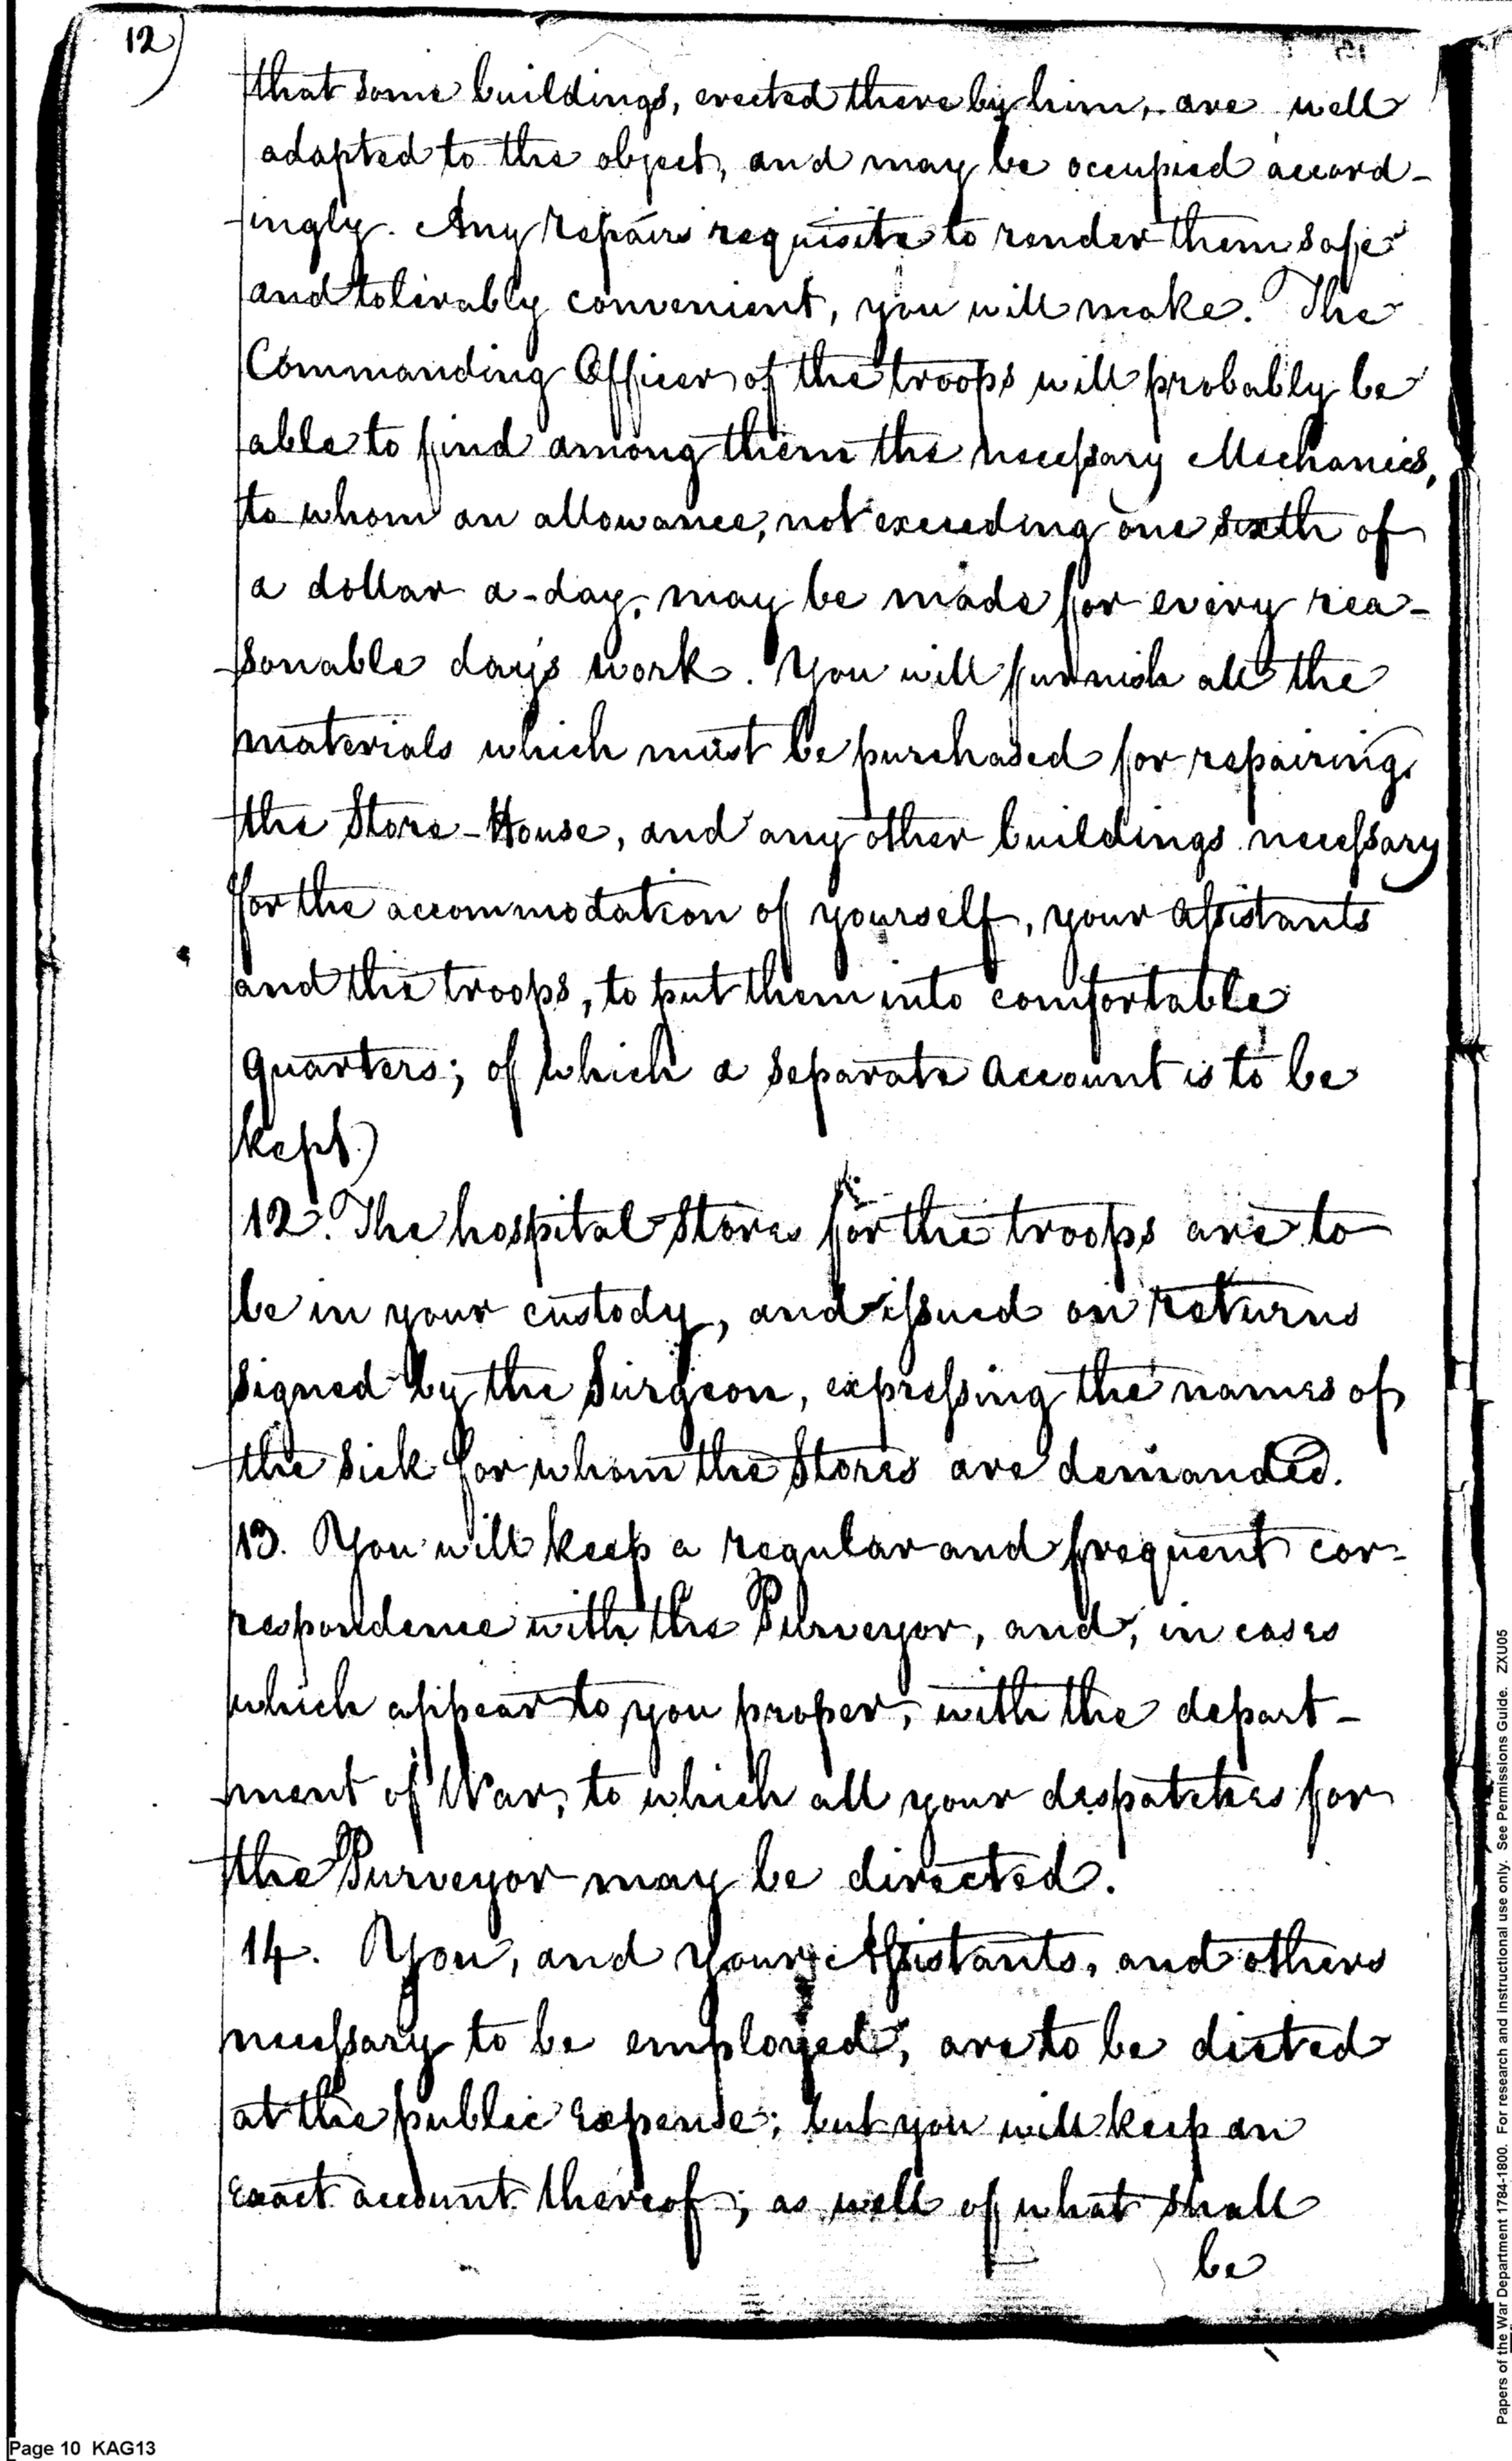 12)
that some buildings, erected there by him, are well
adapted to the object, and may be occupied accord-
-ingly. Any repairs requisite to render them safe
and tolerably convenient, you will make. The
Commanding Officer of the troops will probably be
able to find among them the necessary Mechanics,
to whom an allowance, not exceeding one sixth of
a dollar a-day, may be made for every rea-
-sonable day's work. You will furnish all the
materials which must be purchased for repairing
the Store-House, and any other buildings necessary
for the accommodation of yourself, your Assistants
and the troops, to put them into comfortable
quarters; of which a separate Account is to be
kept.)
12. The hospital Stores for the troops are to
be in your custody, and issued on returns
signed by the Surgeon, expressing the names of
the sick for whom the Stores are demanded.
13. You will keep a regular and frequent cor-
respondence with the Purveyor, and, in cases
which appear to you proper, with the depart-
-ment of War, to which all your despatches for
the Purveyor may be directed.
14. You, and your Assistants, and others
necessary to be employed, are to be dieted
at the public Expense; but you will keep an
exact account thereof; as well of what shall
be
Page 10 KAG13
Papers of the War Department 1784-1800. For research and instructional use only. See Permissions Guide. ZXU05